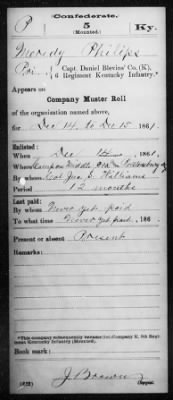 Confederate.
P 5 Ky.
(Mounted.)
Meredy Philips
Pvt., Capt. Daniel Blevins' Co. (K),
5 Regiment Kentucky Infantry.*
Appears on
Company Muster Roll
of the organization named above,
for Dec 14, to Dec 15, 1861.
Enlisted:
When Dec 14, 1861.
Where Camp on Middle
By whom Col Jno. S. Williams
Period 12 months
Last paid:
By whom Never yet paid
To what time Never yet paid, 186 .
Present or absent Present
Remarks:
*This company subsequently became Company E, 5th Regiment Kentucky Infantry (Mounted).
Book mark:
J. Brown
Copyist.